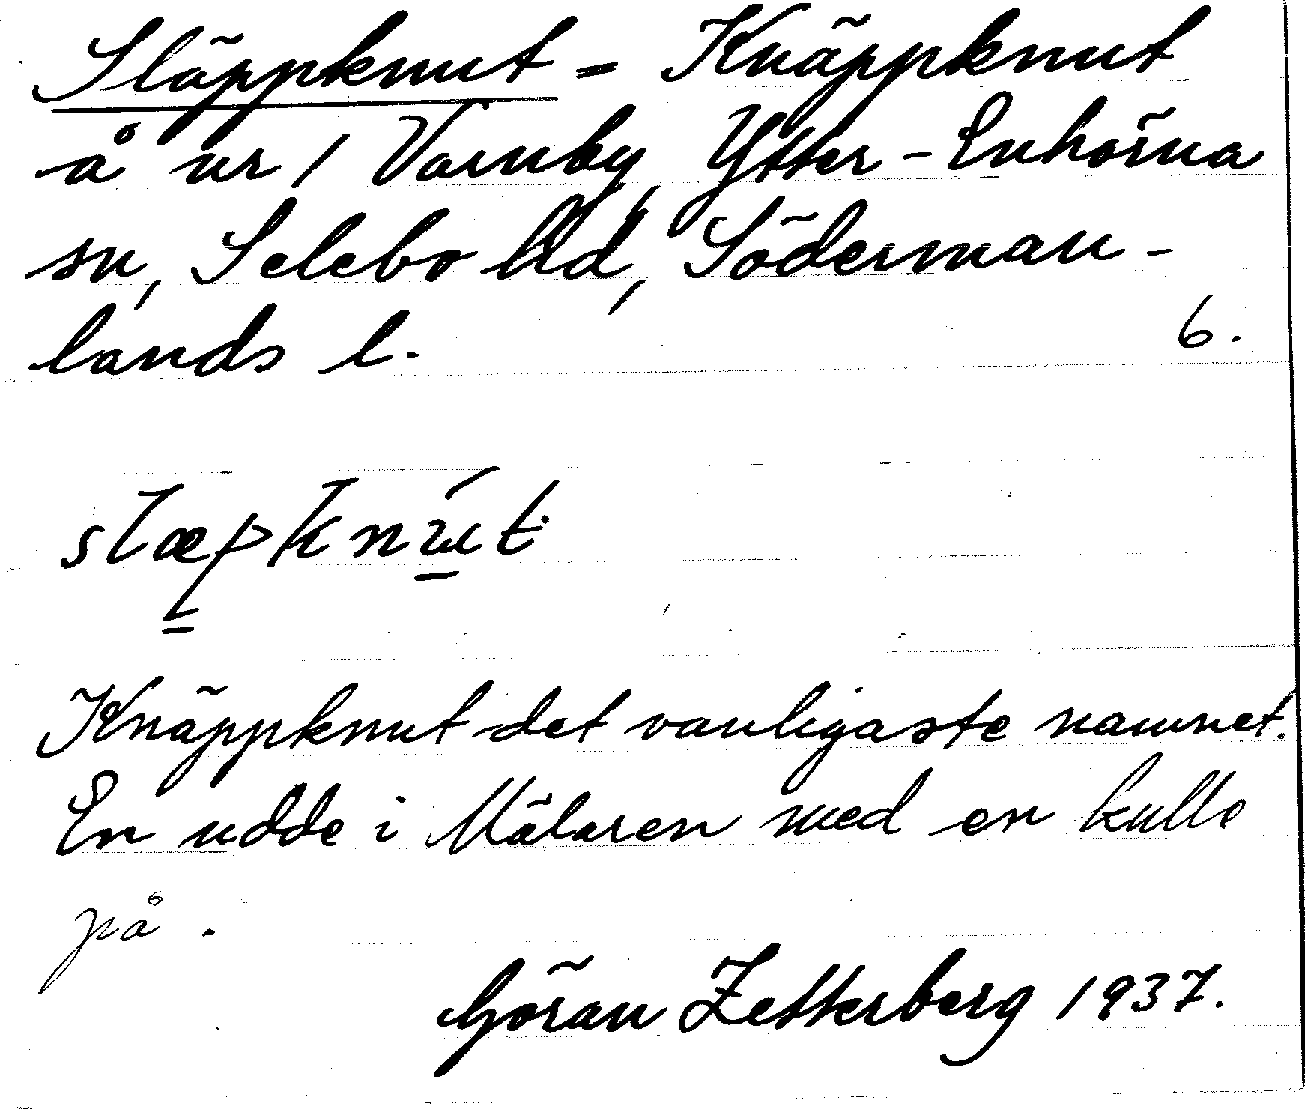 Släppknut = Knäppknut
å nr 1 Vansby, Ytter-Enhörna
sn, Selebo hd, Söderman-
lands l. 6.
slæpknut
Knäppknut det vanligaste namnet.
En udde i Mälaren med en kulle
på.
Göran Zetterberg 1937.